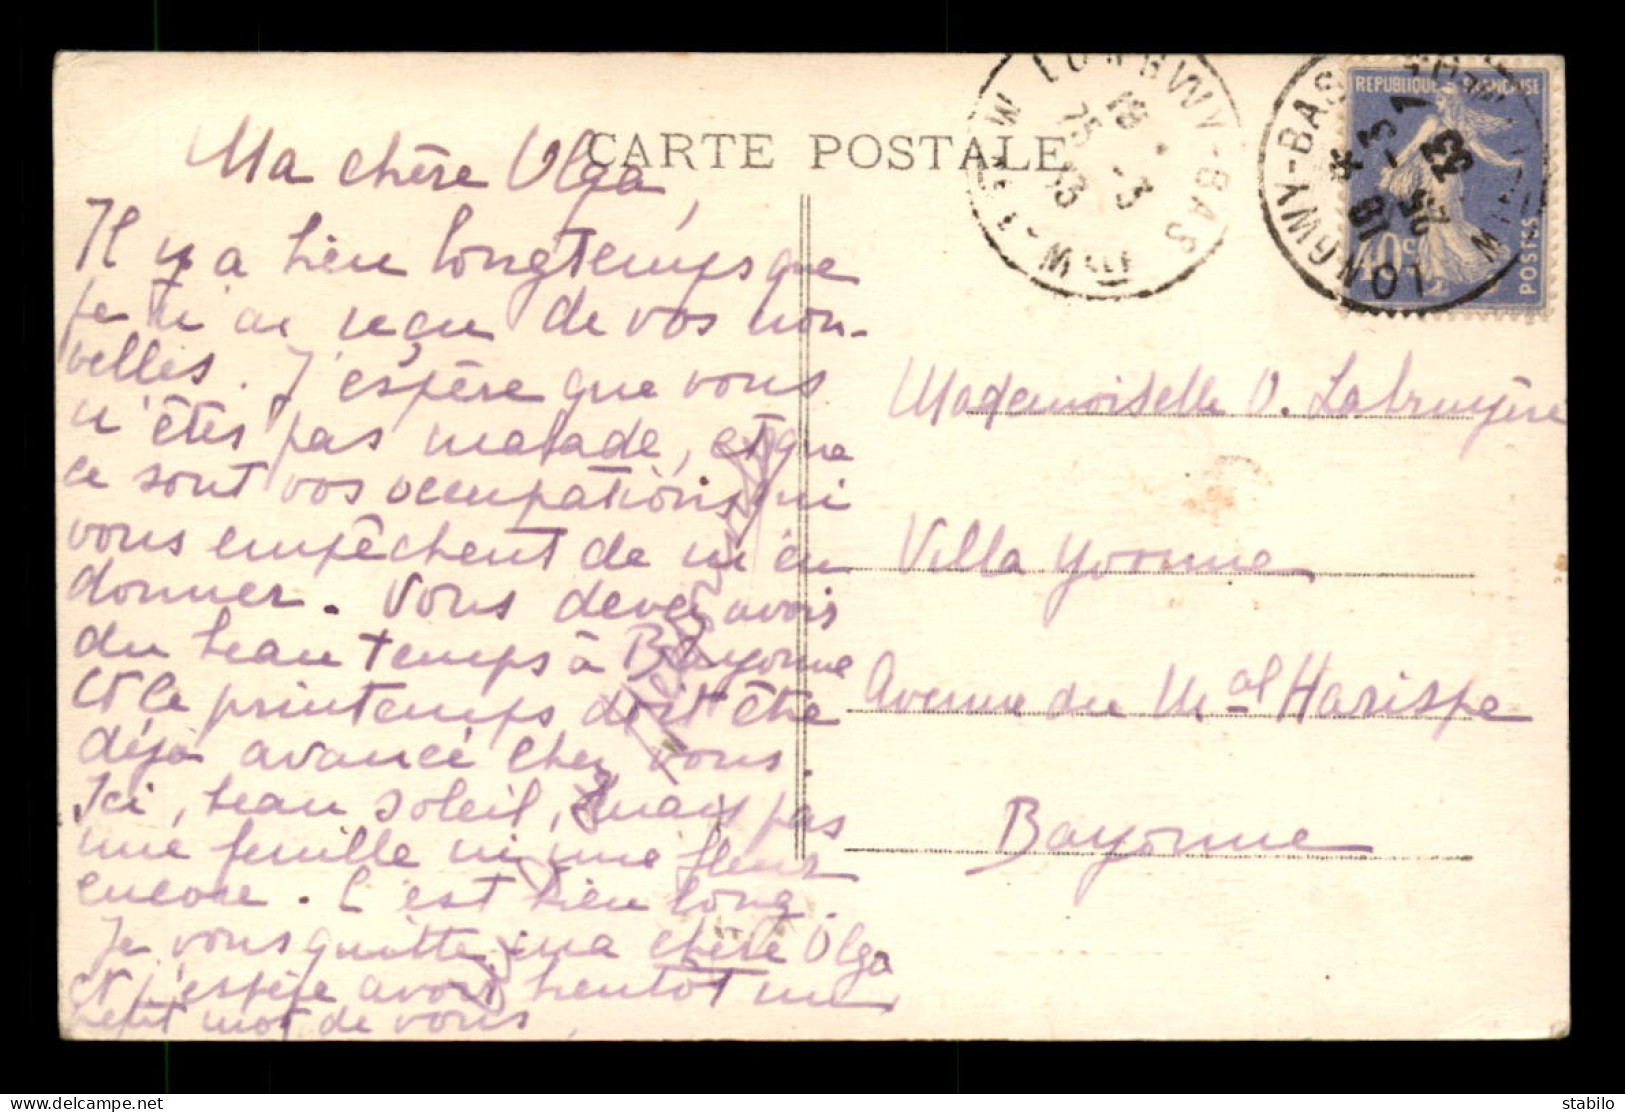 CARTE POSTALE
Ma chère Olga,
Il y a bien longtemps que
je n'ai reçu de vos nou-
velles. J'espère que vous
n'êtes pas malade, et que
ce sont vos occupations qui
vous empêchent de m'en
donner. Vous devez avoir
du beau temps à Bayonne
et le printemps doit être
déjà avancé chez vous.
Ici, beau soleil, mais pas
une feuille ni une fleur
encore. C'est bien long.
Je vous quitte, ma chère Olga
et j'espère avoir bientôt un
petit mot de vous.
LONGWY-BAS
18 -3
LONGWY-BAS
REPUBLIQUE FRANÇAISE
40c
POSTES
Mademoiselle O. Labruyère
Villa Yvonne
Avenue du Mal Harispe
Bayonne
stabilo